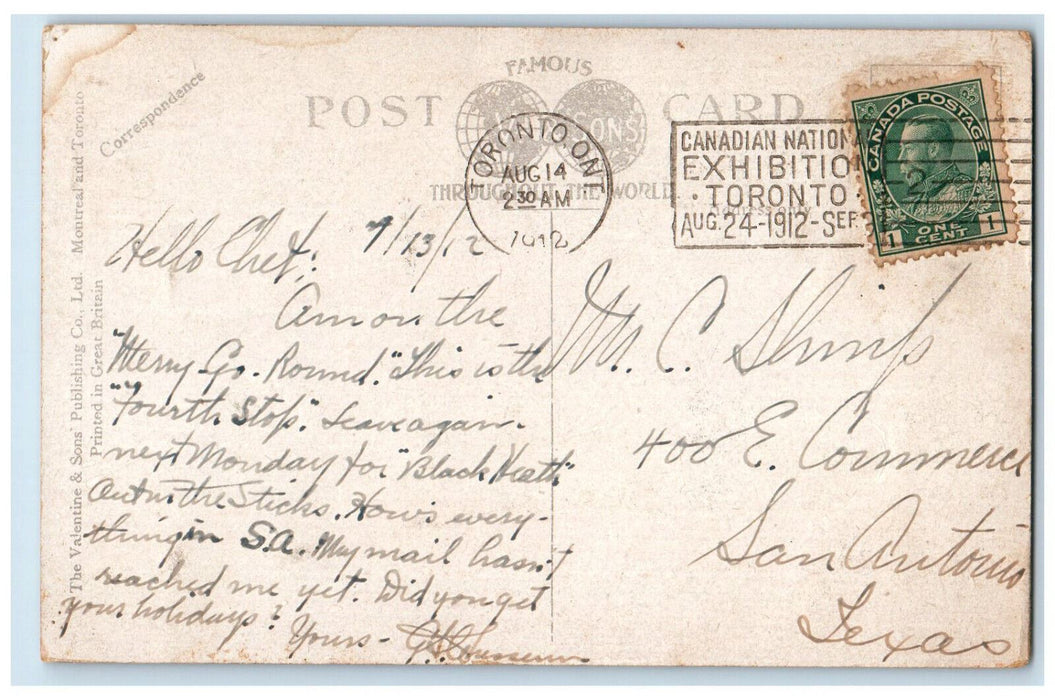 FAMOUS
POST CARD
THROUGHOUT THE WORLD
Correspondence
The Valentine & Sons' Publishing Co., Ltd. Montreal and Toronto
Printed in Great Britain
TORONTO. ONT
AUG 14
2 30 AM
1912
CANADIAN NATION
EXHIBITIO
TORONTO
AUG. 24-1912-SEP.
CANADA POSTAGE
1 ONE CENT 1
Hello Chet;
/13/12
Am on the
"Merry Go. Round." This is the
"Fourth Stop." Leave again
next Monday for "Black Heath"
Out in the Sticks. How's every-
thing in S.A. My mail hasn't
reached me yet. Did you get
your holidays?
Yours -
Mr. C. 
400 E. Commerce
San Antonio
Texas